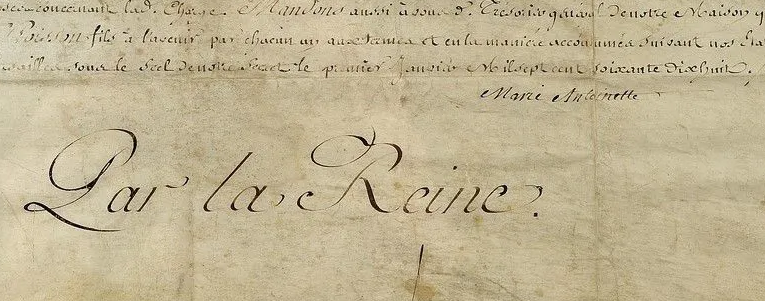 concernant lad. Charge. Mandons aussi à nous d. Trésorier général de notre Maison q
Poisson fils à l'avenir par chacun an aux termes et en la manière accoutumés suivant nos Éta
sailles sous le Scel de notre Secret le premier Janvier Mil sept cent soixante dix huit.
Marie Antoinette
Par la Reine.